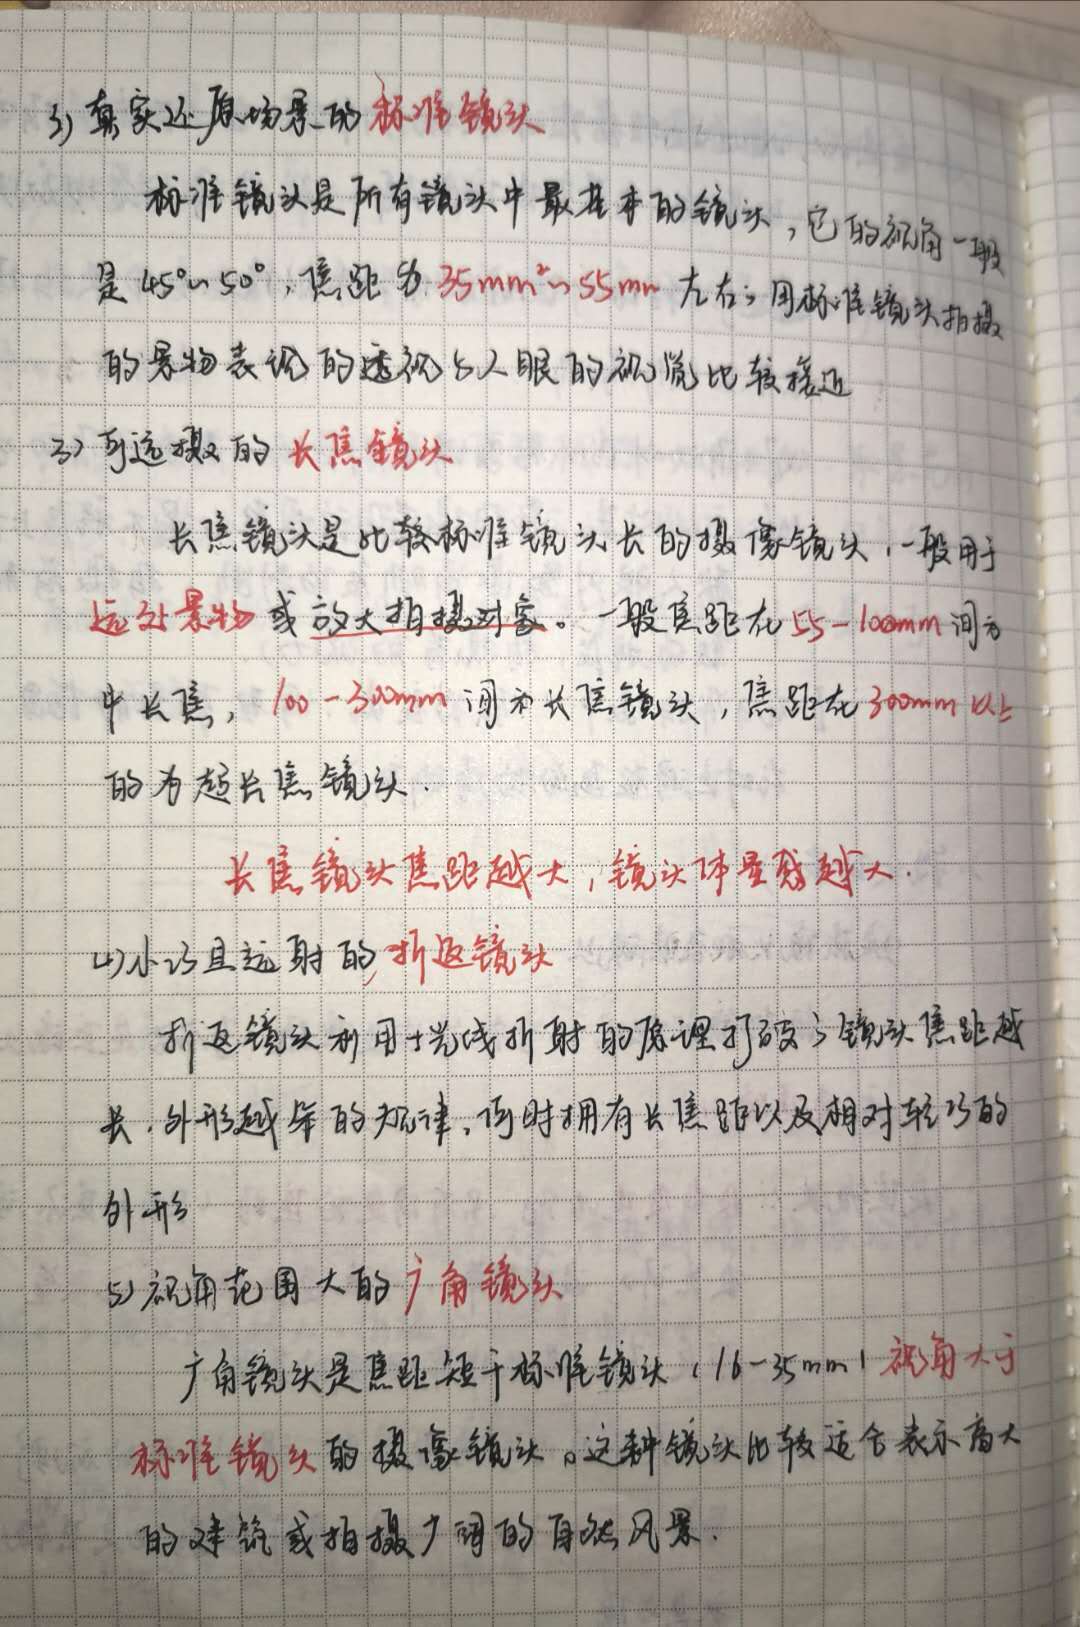 3)真实还原场景的标准镜头
标准镜头是所有镜头中最基本的镜头,它的视角一般
是45°~50°,焦距为35mm~55mm左右;用标准镜头拍摄
的景物表现的透视与人眼的视觉比较接近
3)可远摄的长焦镜头
长焦镜头是比较标准镜头长的摄像镜头,一般用于
远处景物或放大拍摄对象。一般焦距在55-100mm间为
中长焦,100-300mm间为长焦镜头,焦距在300mm以上
的为超长焦镜头.
长焦镜头焦距越大,镜头体量越大.
4)小巧且远射的折返镜头
折返镜头利用光线折射的原理打破了镜头焦距越
长.外形越笨的规律,同时拥有长焦距以及相对轻巧的
外形
5)视角范围大的广角镜头
广角镜头是焦距短于标准镜头(16-35mm)视角大于
标准镜头的摄像镜头。这种镜头比较适合表示高大
的建筑或拍摄广阔的自然风景.